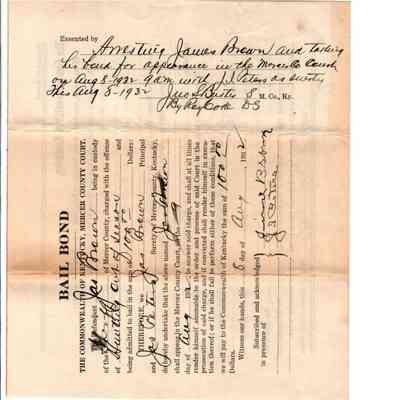 Executed by Arresting James Brown and taking
his bond for appearance in the Mercer Co Court
on Aug 8, 1932 9 am with J. Peters as surety
This Aug 5-1932
M. Co., Ky.
D S
BAIL BOND
THE COMMONWEALTH OF KENTUCKY, MERCER COUNTY COURT.
Defendant Jas Brown being in custody
of the of Mercer County, charged with the offense
of Hunting out of season and
being admitted to bail in the sum of 100.00 Dollars:
THEREFORE, we Jas Brown Principal
and Jas Peters Surety of Mercer County, Kentucky,
do hereby undertake that the above named Jas Brown
shall appear in the Mercer County Court, on the
day of Aug 193 2, to answer said charge, and shall at all times
render himself amenable to the order and process of said Court in the
prosecution of said charge, and if convicted shall render himself in execu-
tion thereof; or if he shall fail to perform either of these conditions, that
we will pay to the Commonwealth of Kentucky the sum of 100.00
Dollars.
Witness our hands, this 5 day of Aug 193 2
Subscribed and acknowledged
in presence of
James Brown